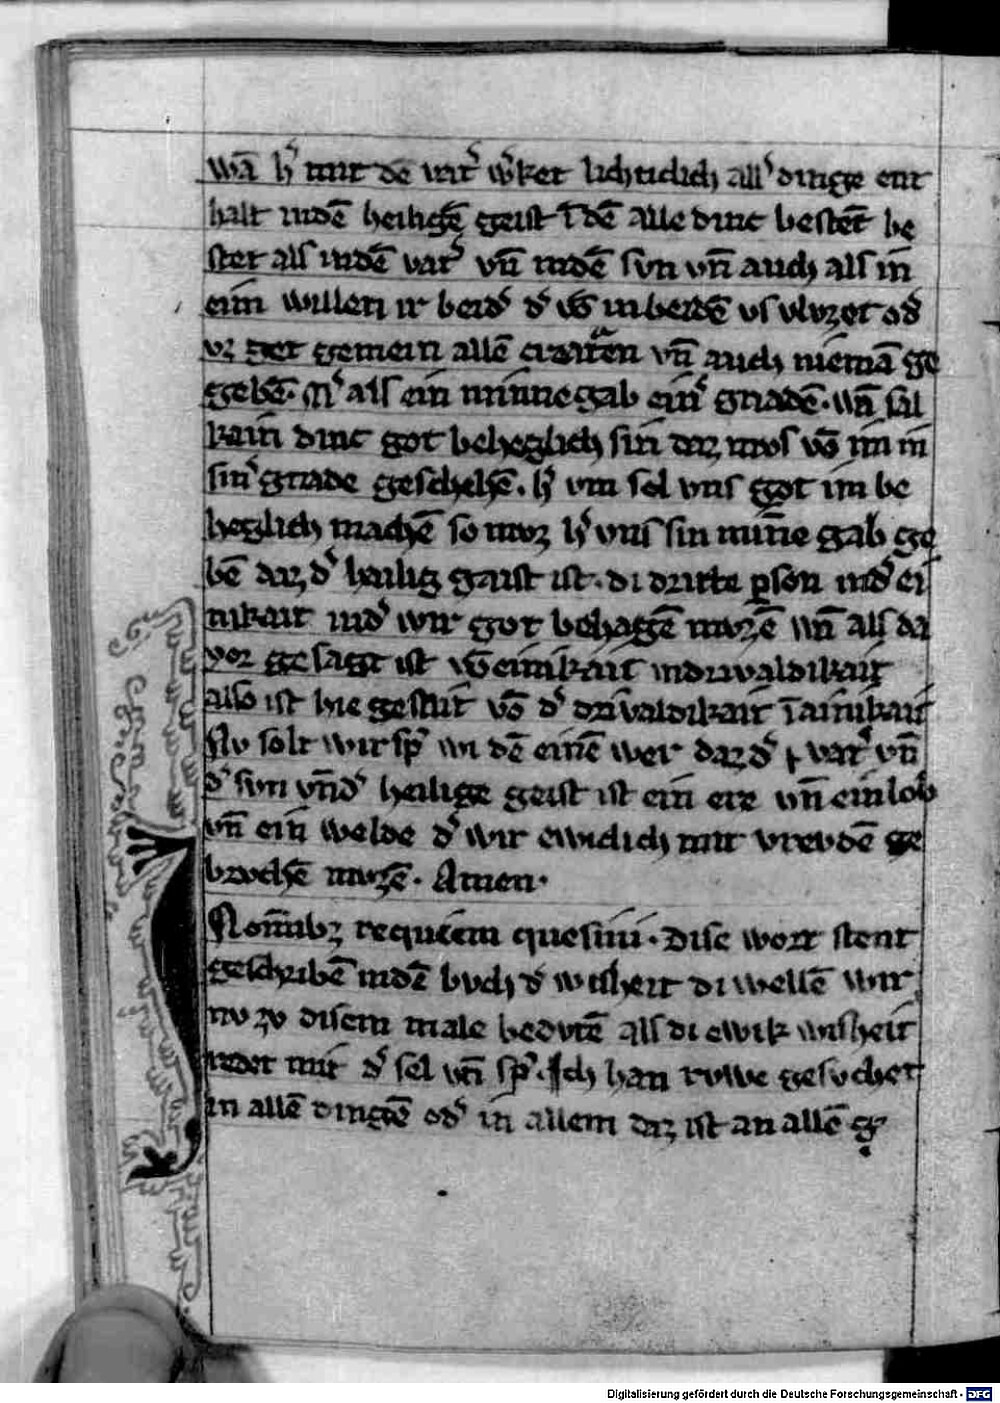 wā h᷒ mit dē vat᷒ w᷒ket lichticlich all᷒ dinge ent
halt indē heiligē geist ī dē alle dinc bestēt be
stet als indē vat᷒ vn̄ indē svn vn̄ auch als in
eim willen ir beid᷒ d᷒ in beidē vs vluzet od᷒
vz get gemein allē creatᷓren vn̄ auch niemā ge
gebē. M᷒ als ein minne gab ein᷒ gnadē. wā sal
kain dinc got beheglich sin daz mvos vō im in
sin᷒ gnade geschehē. h᷒ vm sol vns got im be
heglich machē so mvz h᷒ vns sin miñe gab ge
bē daz d᷒ heilig gaist ist. di dritte ꝑson ind᷒ ei
nikait ind᷒ wir got behagē mvzē wā als da
vor gesagt ist vō einikait indrivaldikait
also ist hie gestift vō d᷒ drivaldikait ī ainikait
Nv solt wir sp᷒ wi dē einē wer daz d᷒ vat᷒ vn̄
d᷒ svn vn̄ d᷒ heilige geist ist ein ere vn̄ ein lob
vn̄ ein welde d᷒ wir ewiclich mit vrevdē ge
brvchē mvzē. Amen.
Nom̄ibꝫ requiem quesivi. Dise wort stent
geschribē indē bvch d᷒ wisheit di wellē wir
nv zv disem male bedvtē als di ewik wisheit
redet mit d᷒ sel vn̄ sp᷒. Ich han rvwe gesvchet
in allē dingē od᷒ in allem daz ist an allē g᷒
Digitalisierung gefördert durch die Deutsche Forschungsgemeinschaft - DFG